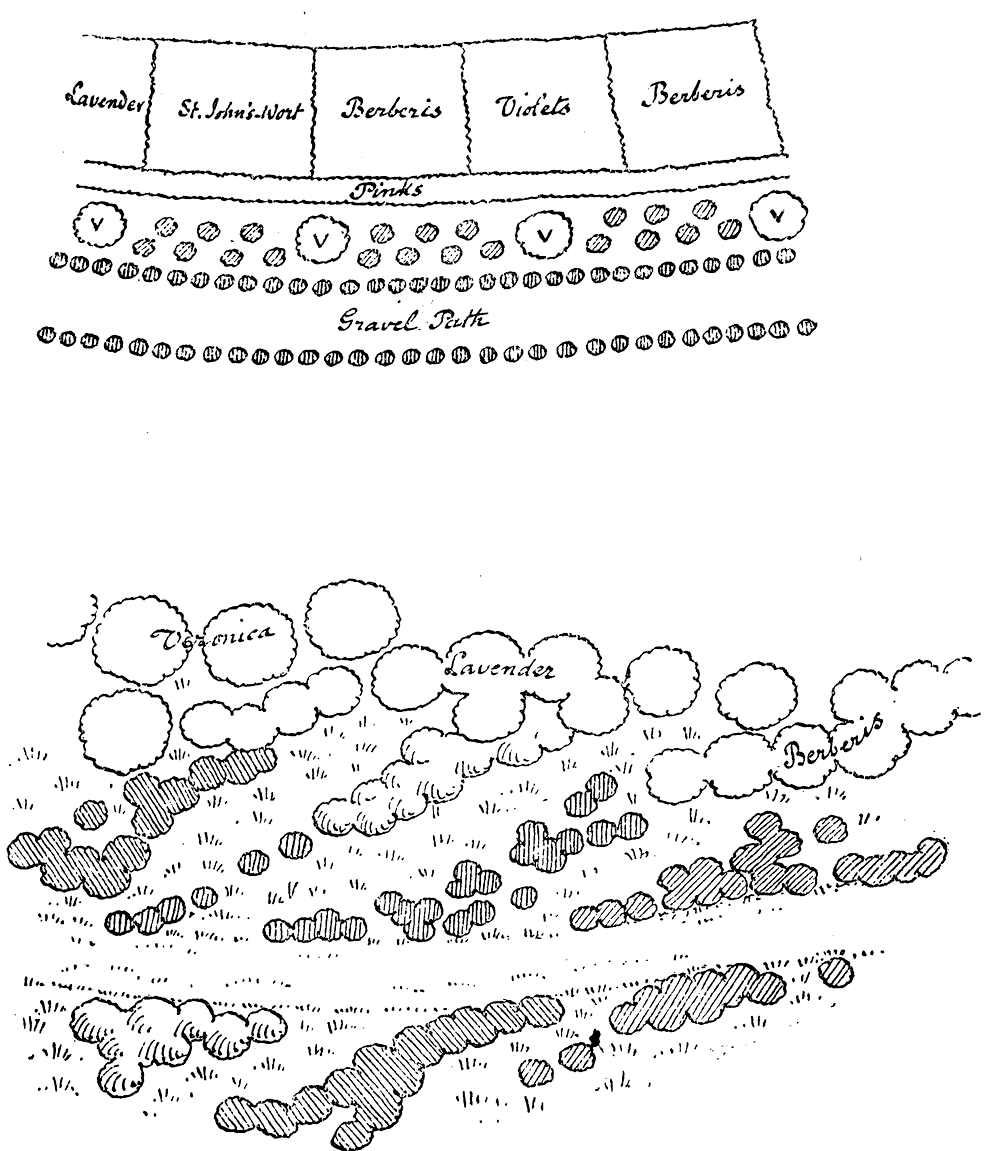 Lavender
St. John's-Wort
Berberis
Violets
Berberis
Pinks
V
V
V
V
Gravel Path
Veronica
Lavender
Berberis